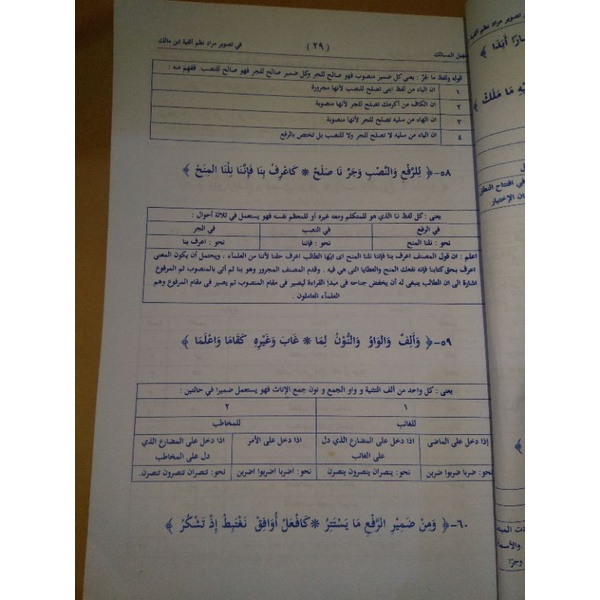 في تصوير مراد نظم ألفية ابن مالك
( ٢٩ )
سهل المسالك
قوله ولفظ ما جرّ : يعنى كل ضمير منصوب فهو صالح للجر وكل ضمير صالح للجر فهو صالح للنصب. ففهم منه :
١ ان الياء من لفظ ابنى تصلح للنصب لأنها مجرورة
٢ ان الكاف من أكرمك تصلح للجر لأنها منصوبة
٣ ان الهاء من سليه تصلح للجر لأنها منصوبة
٤ ان الياء من سليه لا تصلح للجر ولا للنصب بل تختص بالرفع
٥٨-﴿ لِلرَّفْعِ وَالنَّصْبِ وَجَرّ نَا صَلَحْ * كَاعْرِفْ بِنَا فَإِنَّنَا نِلْنَا المِنَحْ ﴾
يعنى : كل لفظ نا الذي هو للمتكلم ومعه غيره أو للمعظم نفسه فهو يستعمل في ثلاثة أحوال :
في الرفع في النصب في الجر
نحو : نلنا المنح نحو : فإننا نحو : اعرف بنا
اعلم : ان قول المصنف اعرف بنا فإننا نلنا المنح اى ايها الطالب اعرف حقنا لأننا من العلماء . ويحتمل أن يكون المعنى
اعرف بحق كتابنا فإنه نفعتك المنح والعطايا التى هي فيه . وقدم المصنف المجرور وهو بنا ثم أتى بالمنصوب ثم المرفوع
اشارة الى ان الطالب ينبغى له أن يخفض جناحه في مبدا القراءة ليصير في مقام المنصوب ثم يصير في مقام المرفوع وهم
العلماء العاملون .
٥٩-﴿ وَأَلِفٌ وَالوَاوُ وَالنُّوْنُ لِمَا * غَابَ وَغَيْرِهِ كَقَامَا وَاعْلَمَا ﴾
يعنى : كل واحد من ألف التثنية و واو الجمع و نون جمع الإناث فهو يستعمل ضميرا في حالتين :
١ ٢
للغائب للمخاطب
إذا دخل على الماضى اذا دخل على المضارع الذي دل على الغائب اذا دخل على الأمر اذا دخل على المضارع الذي دل على المخاطب
نحو: ضربا ضربوا ضربن نحو: ينصران ينصرون ينصرن نحو: اضربا اضربوا اضربن نحو: تنصران تنصرون تنصرن
٦٠-﴿ وَمِنْ ضَمِيْرِ الرَّفْعِ مَا يَسْتَتِرُ * كَافْعَلْ أُوَافِقْ نَغْتَبِطْ إِذْ تَشْكُرُ ﴾